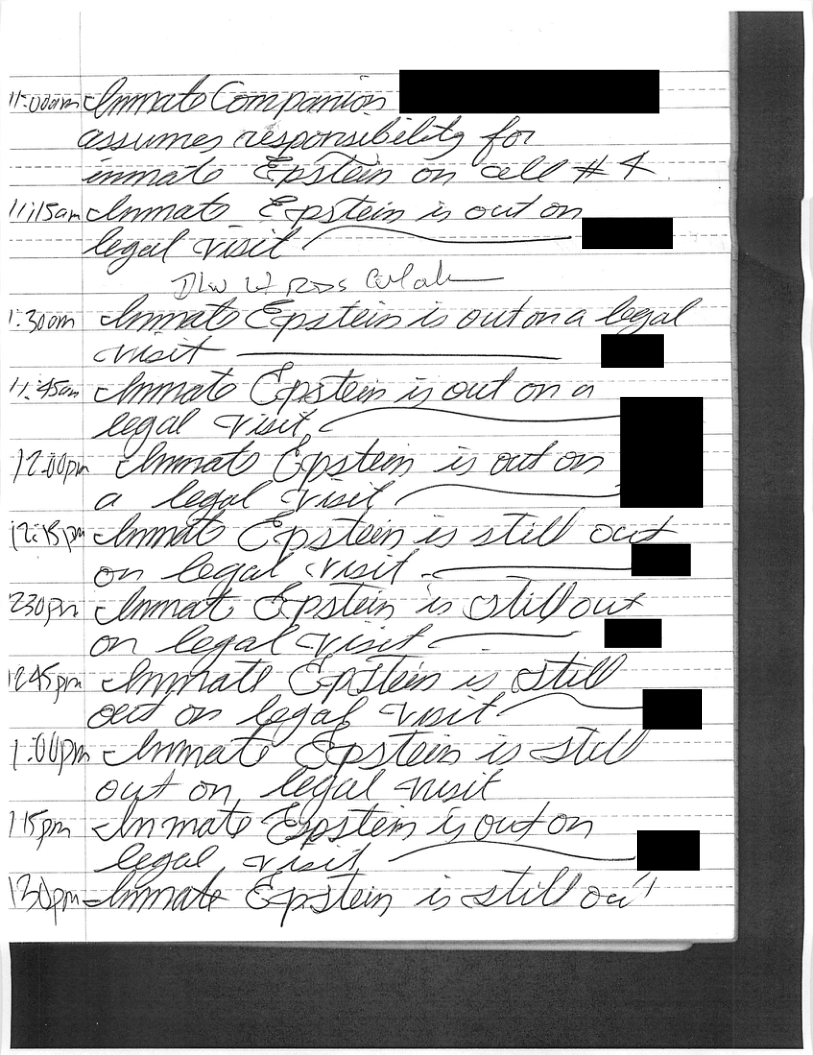 11:00am Inmate Companion
assumes responsibility for
inmate Epstein on cell # 4
11:15am Inmate Epstein is out on
legal visit
1:30am Inmate Epstein is out on a legal
visit
11:45am Inmate Epstein is out on a
legal visit
12:00pm Inmate Epstein is out on
a legal visit
12:15pm Inmate Epstein is still out
on legal visit
230pm Inmat Epstein is still out
on legal visit
1245pm Inmate Epstein is still
out on legal visit
1:00pm Inmate Epstein is still
out on legal visit
115pm Inmate Epstein is out on
legal visit
130pm Inmate Epstein is still out